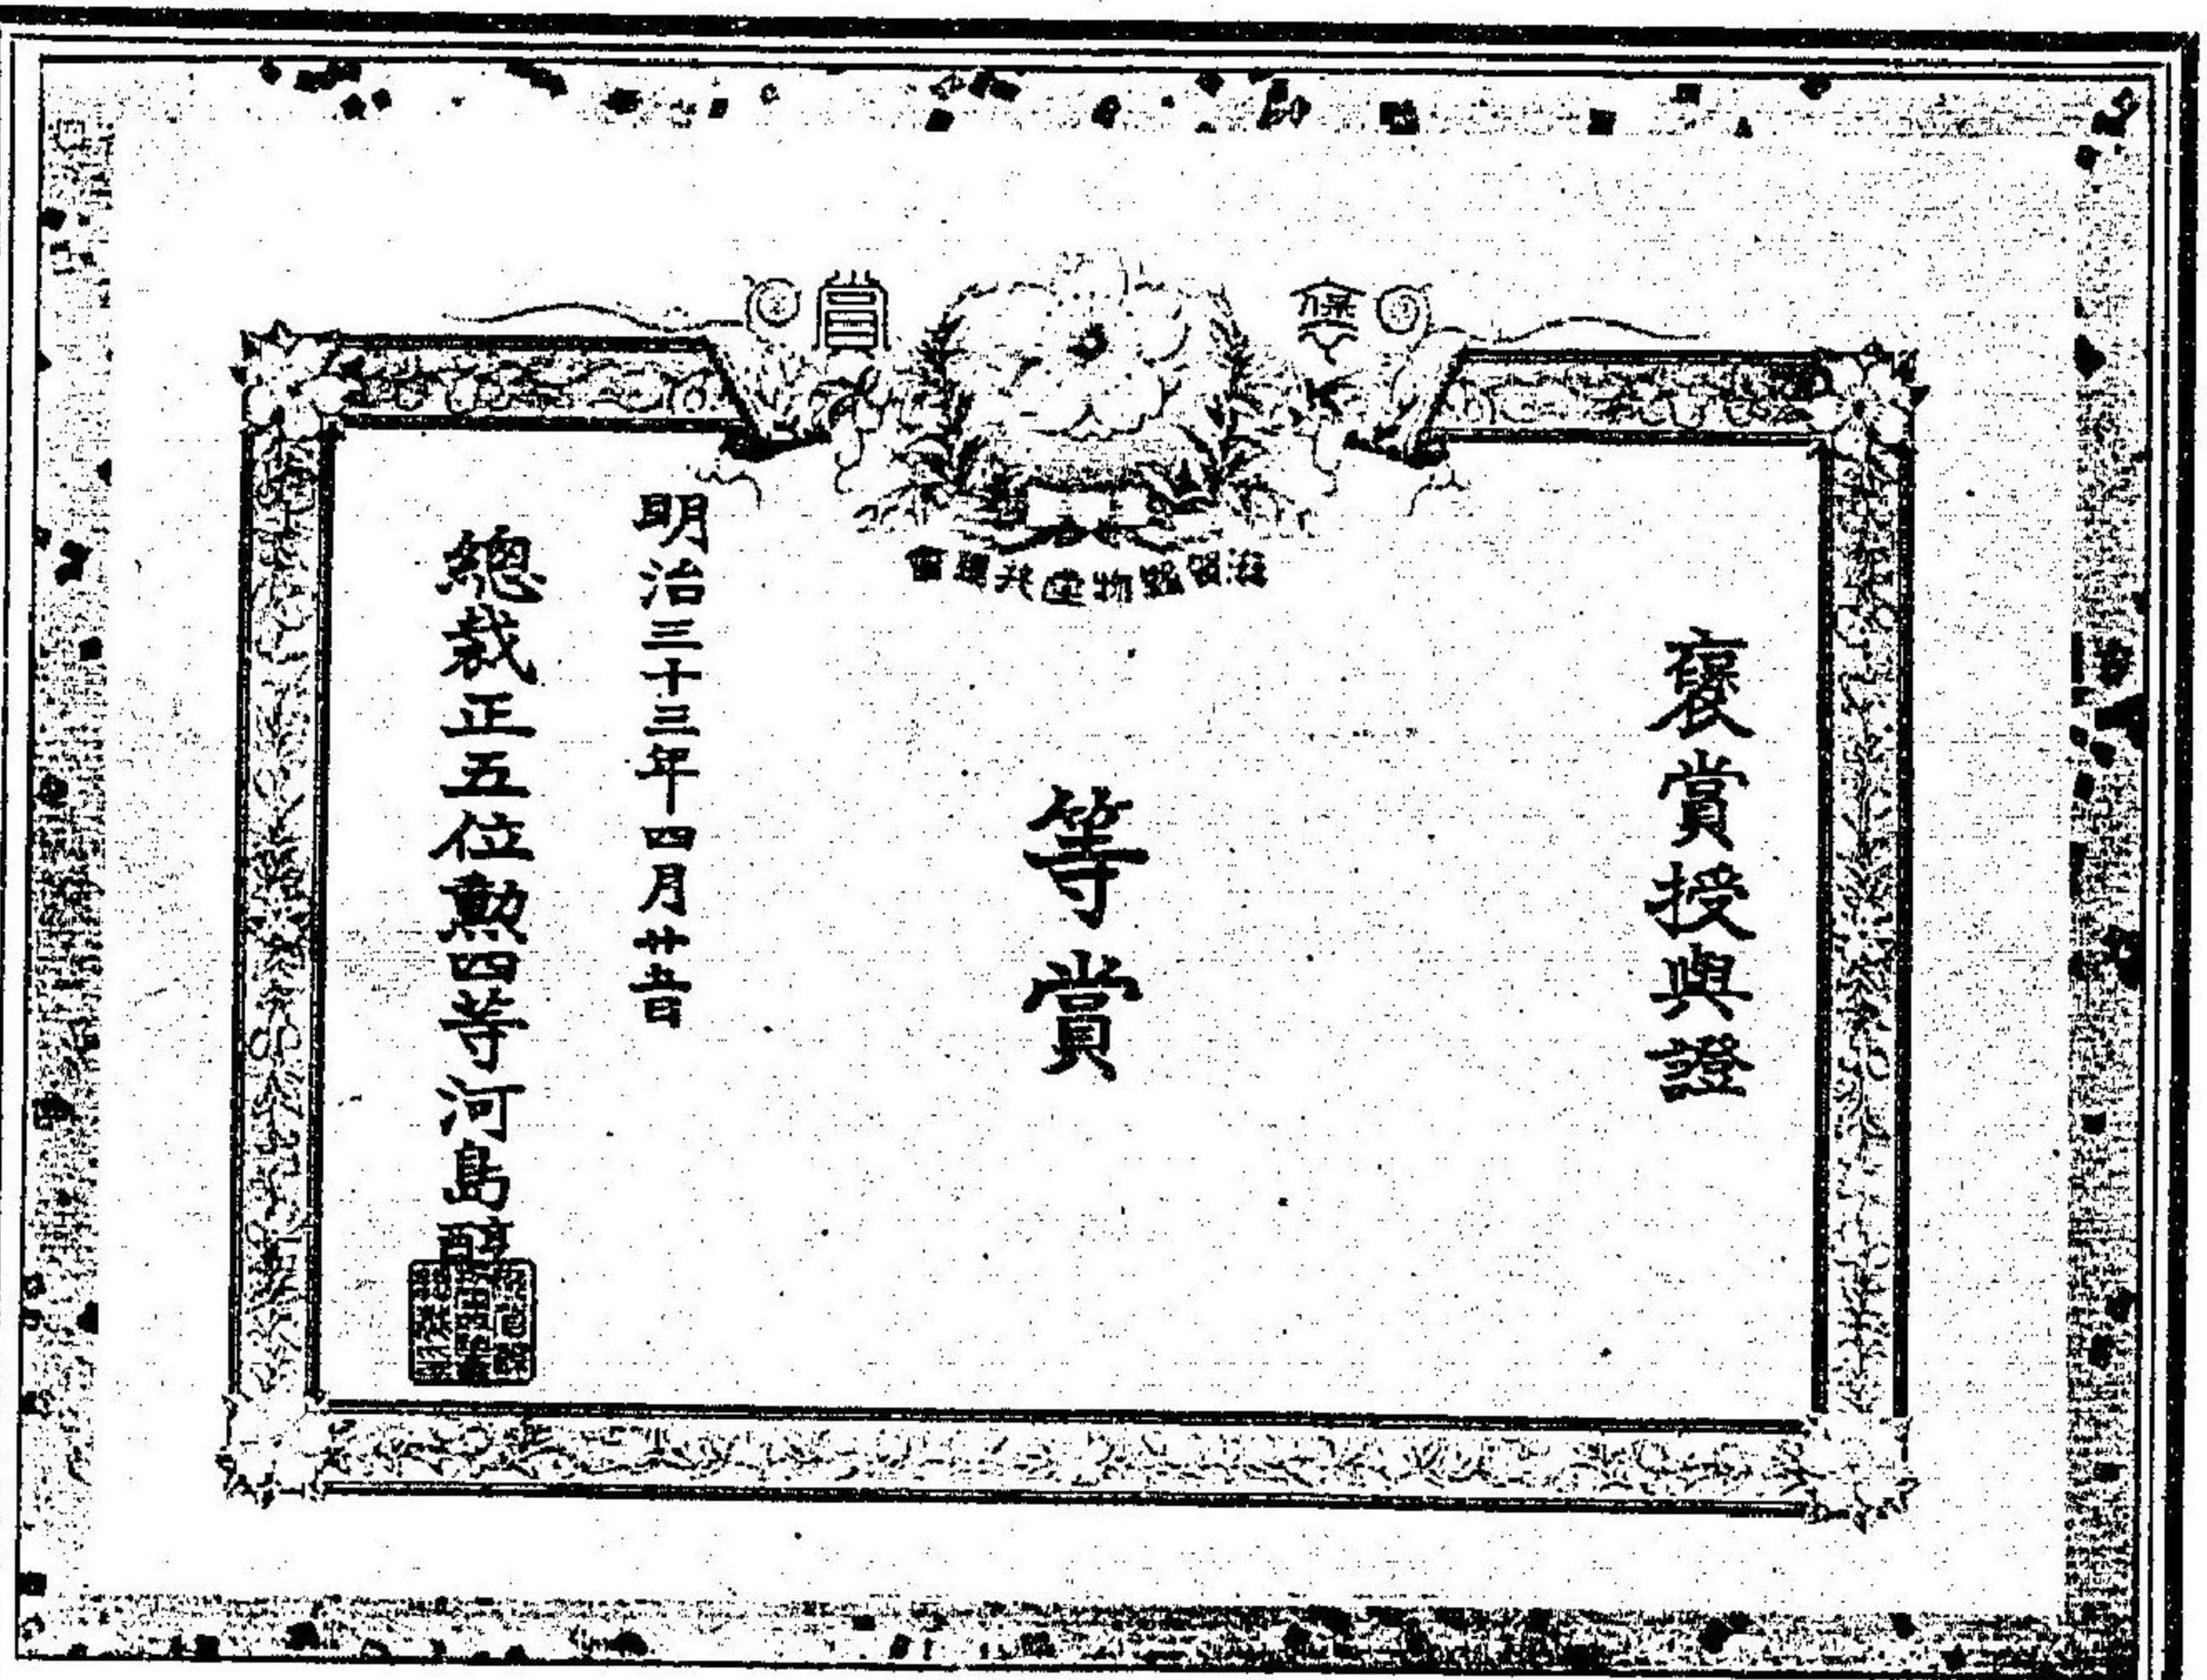 褒賞
滋賀縣物産共進會
褒賞授與證
等賞
明治三十三年四月廿五日
總裁正五位勲四等河島醇